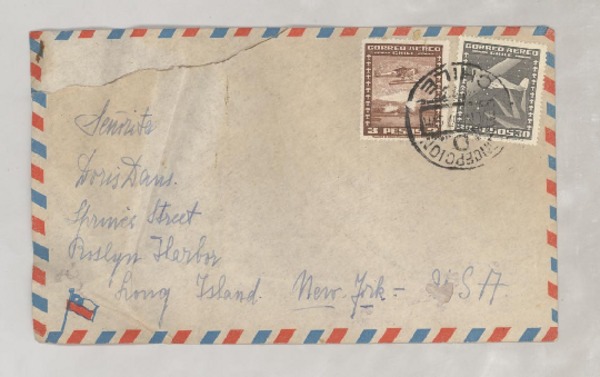 CORREO AEREO
CHILE
3 PESOS
CORREO AEREO
CHILE
CONCEPCION
CHILE
Señorita
Doris Dans.
Street
Roslyn Harbor
Long Island. New York - USA